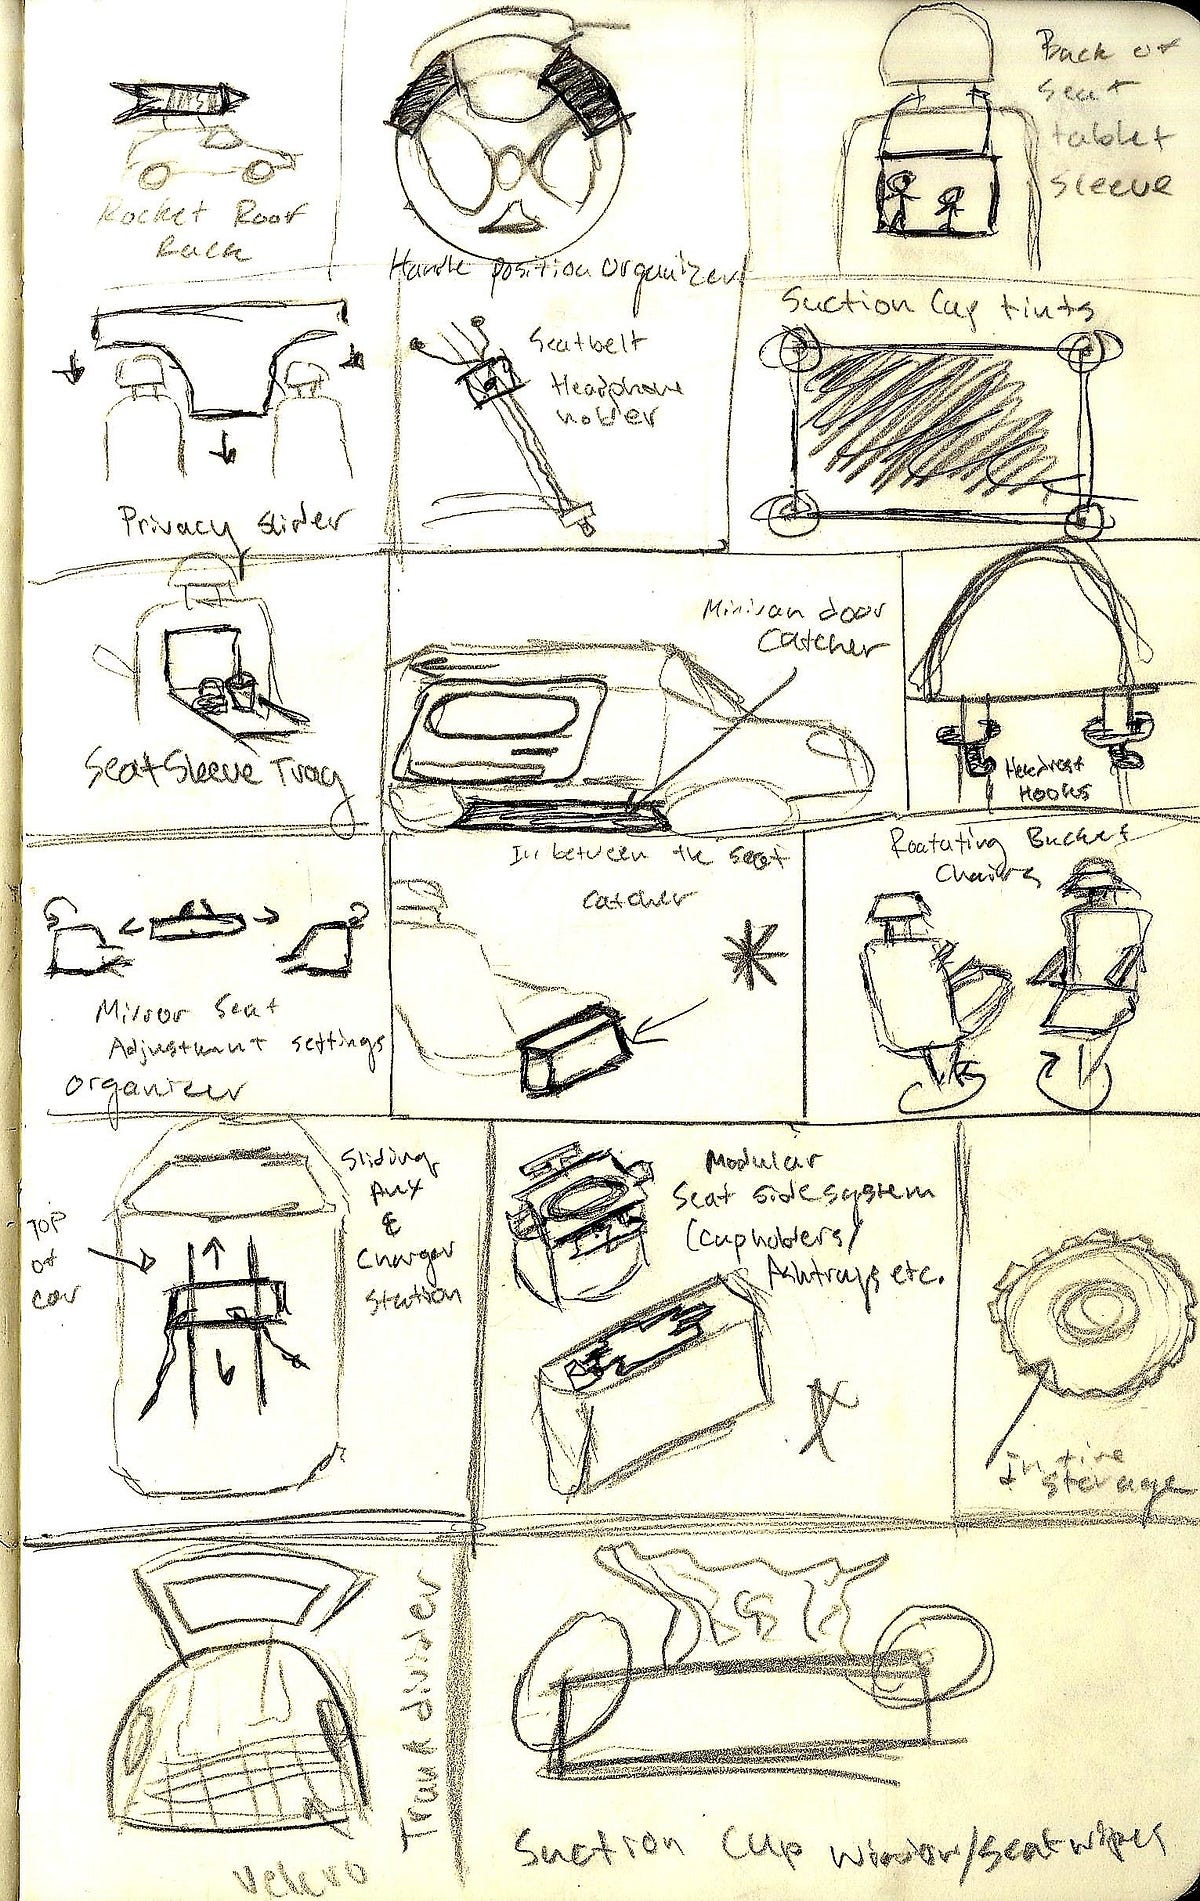 Rocket Roof
Rack
Handle position Organizer
Back of
seat
tablet
sleeve
Privacy slider
Seatbelt
Headphone
holder
Suction Cap tints
Seat Sleeve Tray
Minivan door
Catcher
Headrest
Hooks
Mirror Seat
Adjustment settings
organizer
In between the seat
catcher
Roatating Bucket
Chairs
TOP
of
car
Sliding
Aux
&
Charger
Station
Modular
Seat side system
(cupholders/
Ashtrays etc.
In tire
storage
Trunk divider
Velcro
Suction Cup Window/Seat wipes